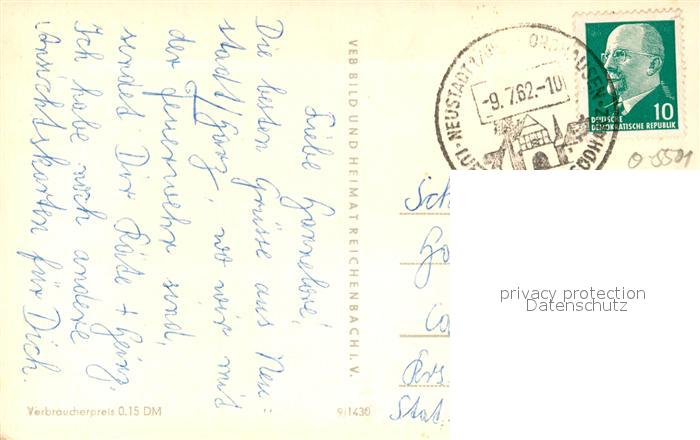 Liebe Hannelore!
Die besten Grüsse aus Neu=
stadt/Harz, wo wir mit
der Feuerwehr sind,
sendet Dir Käte + Heinz.
Ich habe noch andere
Ansichtskarten für Dich.
VEB BILD UND HEIMAT REICHENBACH I. V.
Verbraucherpreis 0.15 DM
9/1430
NEUSTADT
-9.7.62.-10
SÜDHA
10
DEUTSCHE
DEMOKRATISCHE REPUBLIK
0-5501
Sch
Krs.
Stat.
privacy protection
Datenschutz